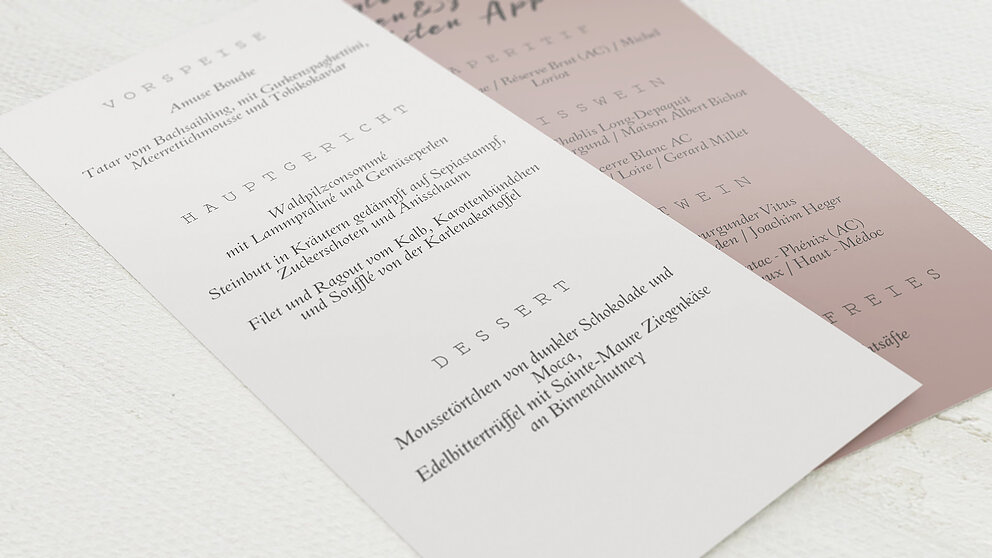 VORSPEISE
Amuse Bouche
Tatar vom Bachsaibling, mit Gurkenspaghettini,
Meerrettichmousse und Tobikokaviar
HAUPTGERICHT
Waldpilzconsommé
mit Lammpraliné und Gemüseperlen
Steinbutt in Kräutern gedämpft auf Sepiastampf,
Zuckerschoten und Anisschaum
Filet und Ragout vom Kalb, Karottenbündchen
und Soufflé von der Karlenakartoffel
DESSERT
Moussetörtchen von dunkler Schokolade und
Mocca,
Edelbittertrüffel mit Sainte-Maure Ziegenkäse
an Birnenchutney
APERITIF
/ Réserve Brut (AC) / Michel
Loriot
ISSWEIN
Chablis Long-Depaquit
/ Maison Albert Bichot
cerre Blanc AC
/ Loire / Gerard Millet
TWEIN
urgunder Vitus
den / Joachim Heger
atac - Phénix (AC)
ux / Haut - Médoc
FREIES
tsäfte